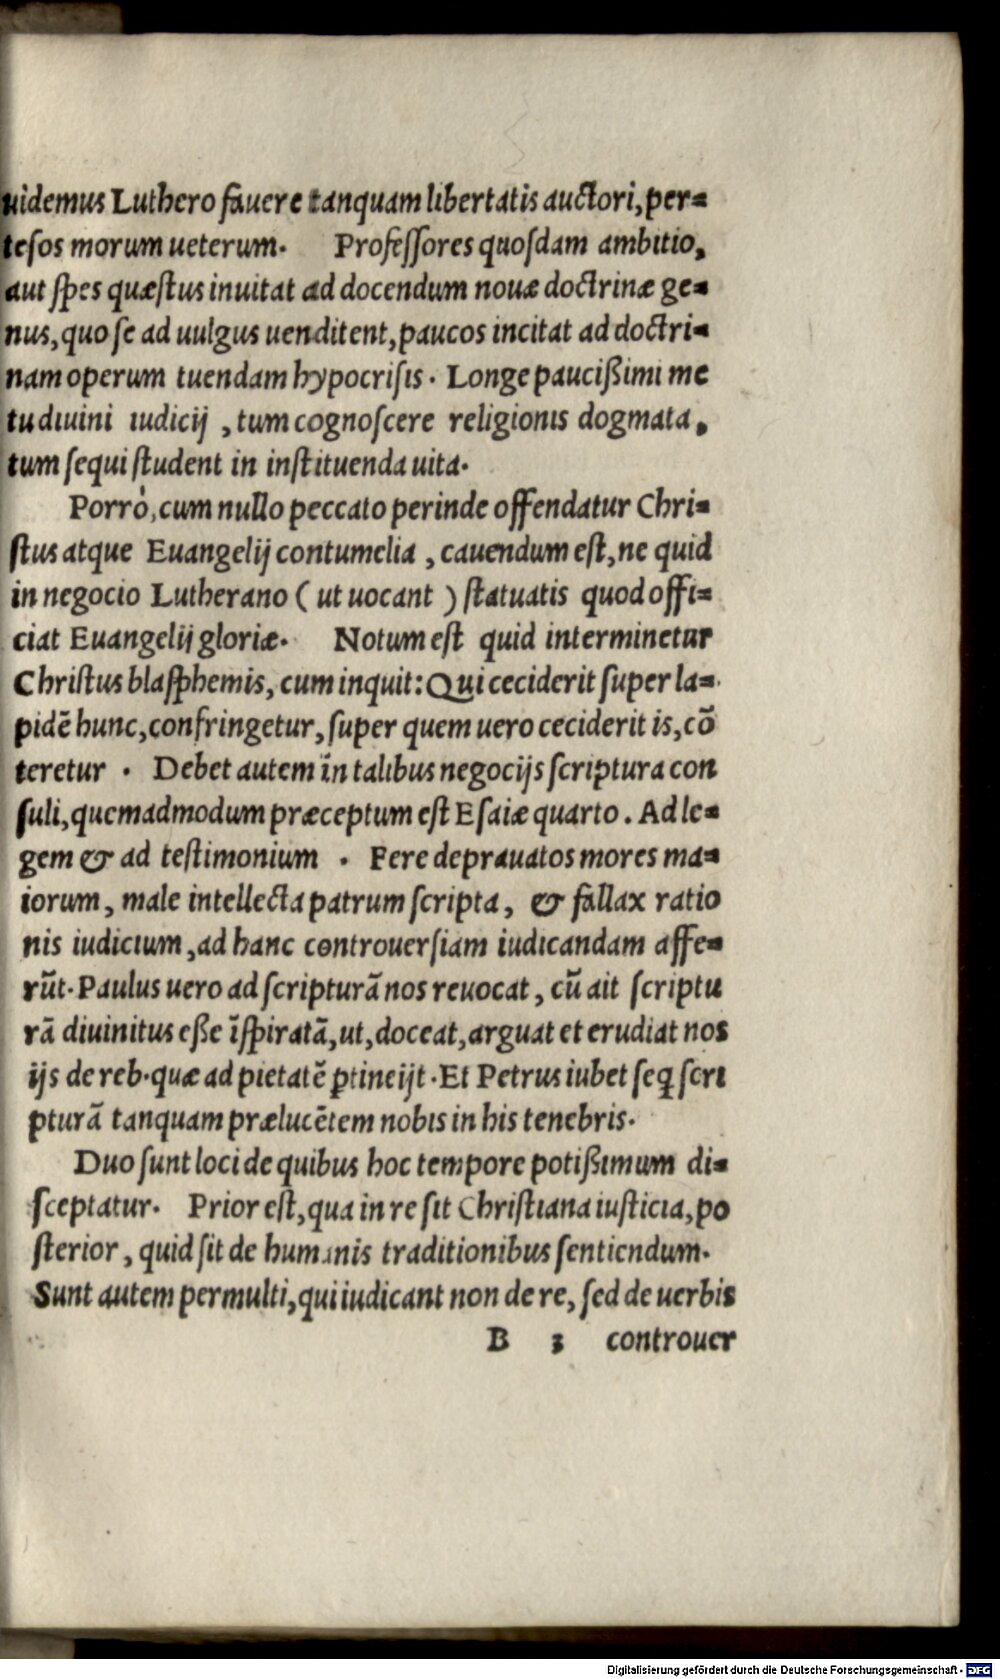 uidemus Luthero fauere tanquam libertatis auctori, per=
tesos morum ueterum. Professores quosdam ambitio,
aut spes quæstus inuitat ad docendum nouæ doctrinæ ge=
nus, quo se ad uulgus uenditent, paucos incitat ad doctri=
nam operum tuendam hypocrisis. Longe paucißimi me
tu diuini iudicij, tum cognoscere religionis dogmata,
tum sequi student in instituenda uita.
Porrò, cum nullo peccato perinde offendatur Chri=
stus atque Euangelij contumelia, cauendum est, ne quid
in negocio Lutherano (ut uocant) statuatis quod offi=
ciat Euangelij gloriæ. Notum est quid interminetur
Christus blasphemis, cum inquit: Qui ceciderit super la=
pidē hunc, confringetur, super quem uero ceciderit is, cō
teretur. Debet autem in talibus negocijs scriptura con
suli, quemadmodum præceptum est Esaiæ quarto. Ad le=
gem & ad testimonium. Fere deprauatos mores ma=
iorum, male intellecta patrum scripta, & fallax ratio
nis iudicium, ad hanc controuersiam iudicandam affe=
rūt. Paulus uero ad scripturā nos reuocat, cū ait scriptu
rā diuinitus eße īspiratā, ut, doceat, arguat et erudiat nos
ijs de reb. quæ ad pietatē ꝑtineijt. Et Petrus iubet seq̨ scri
pturā tanquam prælucētem nobis in his tenebris.
Duo sunt loci de quibus hoc tempore potißimum di=
sceptatur. Prior est, qua in re sit Christiana iusticia, po
sterior, quid sit de humanis traditionibus sentiendum.
Sunt autem permulti, qui iudicant non de re, sed de uerbis
B 3 controuer
Digitalisierung gefördert durch die Deutsche Forschungsgemeinschaft - DFG